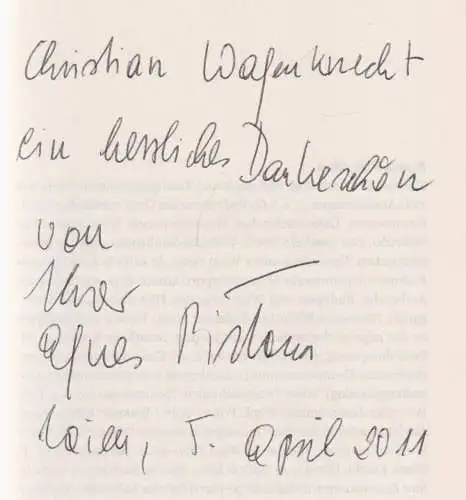 Christian Wagenknecht
ein herzliches Dankeschön
von
Ihrer
Agnes Pistorius
Wien, 5. April 2011